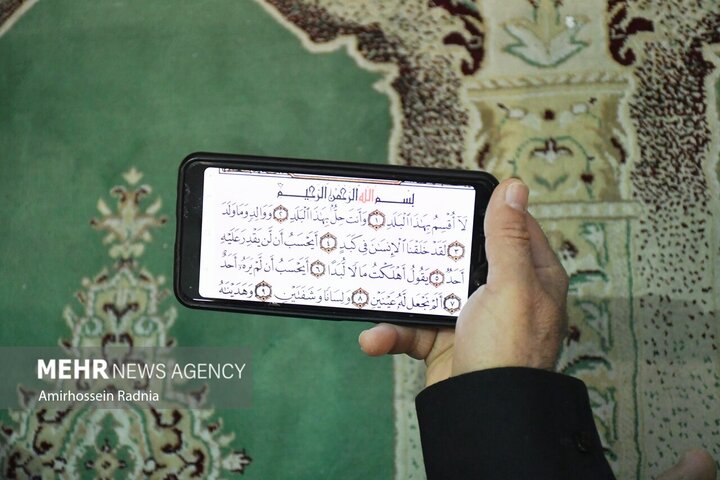 بِسْمِ اللهِ الرَّحْمٰنِ الرَّحِيمِ
لَآ أُقْسِمُ بِهَٰذَا الْبَلَدِ ١ وَأَنتَ حِلٌّ بِهَٰذَا الْبَلَدِ ٢ وَوَالِدٍ وَمَا وَلَدَ
٣ لَقَدْ خَلَقْنَا الْإِنسَٰنَ فِي كَبَدٍ ٤ أَيَحْسَبُ أَن لَّن يَقْدِرَ عَلَيْهِ
أَحَدٌ ٥ يَقُولُ أَهْلَكْتُ مَالًا لُّبَدًا ٦ أَيَحْسَبُ أَن لَّمْ يَرَهُ أَحَدٌ
٧ أَلَمْ نَجْعَل لَّهُ عَيْنَيْنِ ٨ وَلِسَانًا وَشَفَتَيْنِ ٩ وَهَدَيْنَٰهُ
MEHR NEWS AGENCY
Amirhossein Radnia